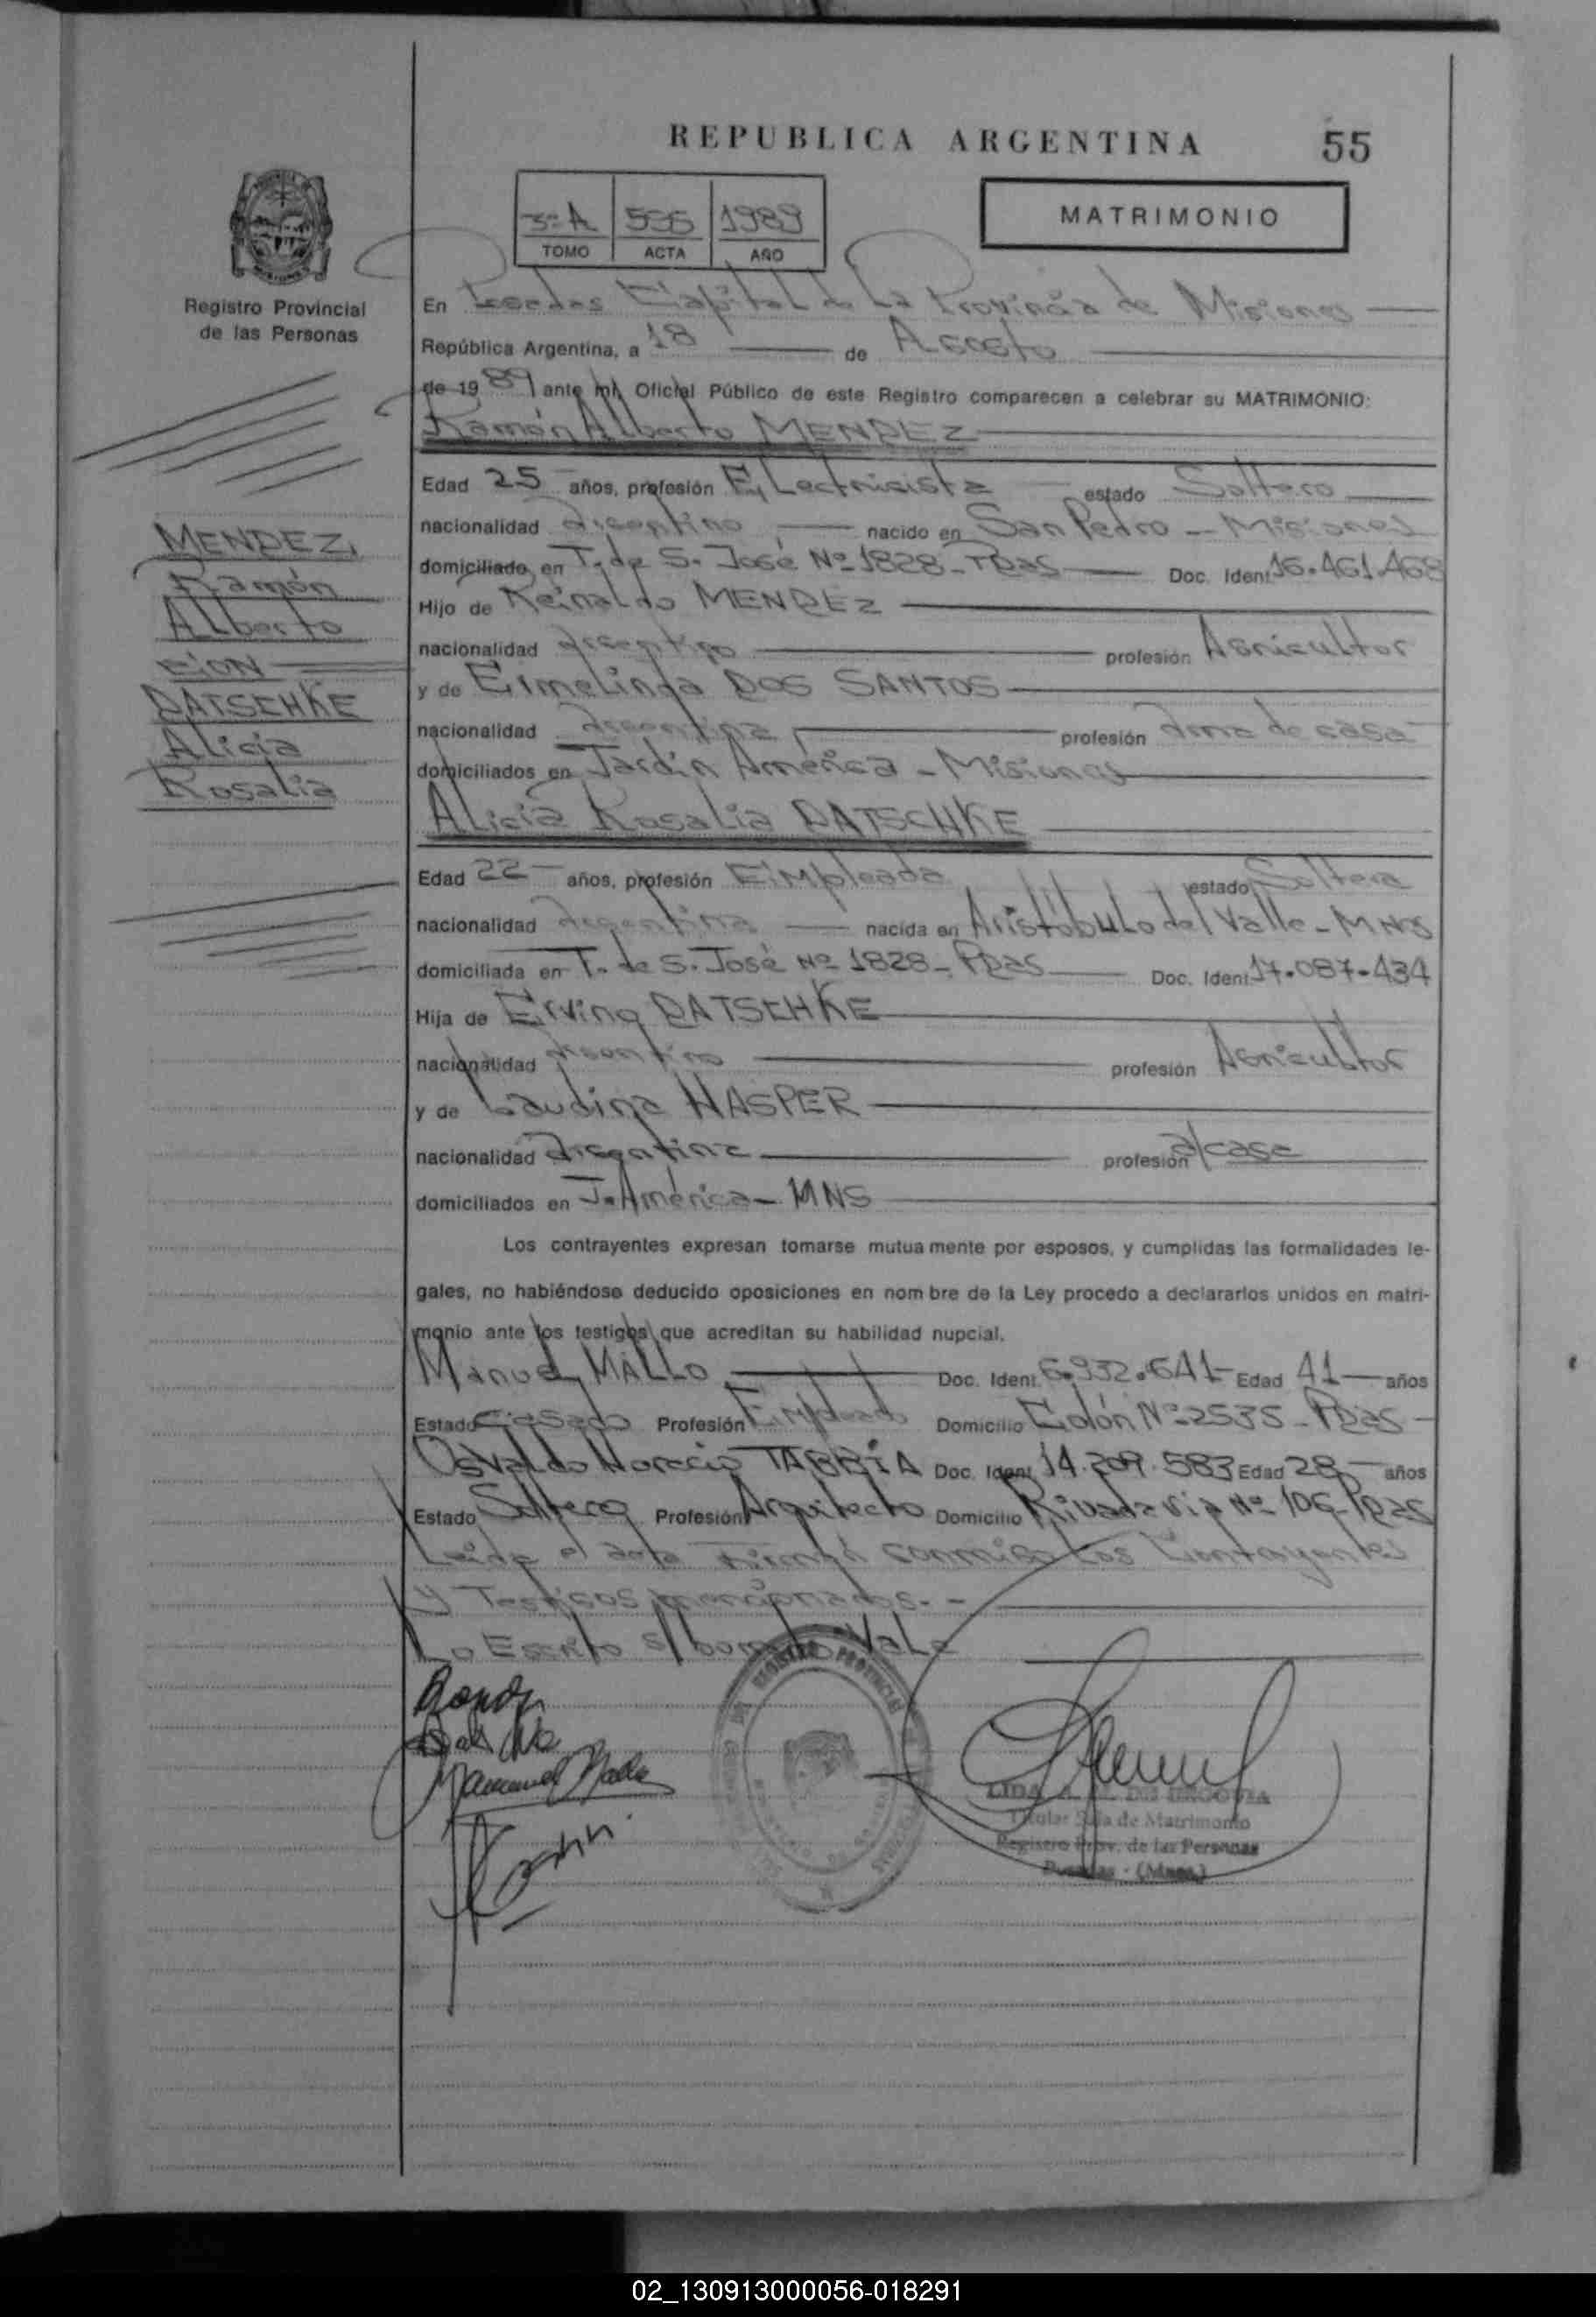 REPUBLICA ARGENTINA 55
3º A 595 1989
TOMO ACTA AÑO
MATRIMONIO
Registro Provincial
de las Personas
En Posadas Capital de La Provincia de Misiones
República Argentina, a 18 de Agosto
de 1989 ante mí, Oficial Público de este Registro comparecen a celebrar su MATRIMONIO:
Ramón Alberto MENDEZ
Edad 25 años, profesión Electricista estado Soltero
nacionalidad Argentino nacido en San Pedro - Misiones
domiciliado en T. de S. José Nº 1828 - Pdas Doc. Ident 16.461.468
Hijo de Reinaldo MENDEZ
nacionalidad Argentino profesión Agricultor
y de Ermelinda DOS SANTOS
nacionalidad Argentina profesión Ama de casa
domiciliados en Jardín América - Misiones
Alicia Rosalia DATSCHKE
Edad 22 años, profesión Empleada estado Soltera
nacionalidad Argentina nacida en Aristóbulo del Valle - MNS
domiciliada en T. de S. José Nº 1828 - Pdas Doc. Ident 17.087.434
Hija de Erving DATSCHKE
nacionalidad Argentino profesión Agricultor
y de Laudina HASPER
nacionalidad Argentina profesión a/casa
domiciliados en J. América - MNS
MENDEZ,
Ramón
Alberto
CON
DATSCHKE
Alicia
Rosalia
Los contrayentes expresan tomarse mutua mente por esposos, y cumplidas las formalidades le-
gales, no habiéndose deducido oposiciones en nom bre de la Ley procedo a declararlos unidos en matri-
monio ante los testigos que acreditan su habilidad nupcial.
Manuel MALLO Doc. Ident. 6.932.641 Edad 41 años
Estado Casado Profesión Empleado Domicilio Colón Nº 2535 - Pdas -
Osvaldo Horacio Doc. Ident 14.209.583 Edad 28 años
Estado Soltero Profesión Arquitecto Domicilio Rivadavia Nº 106 - Pdas
Leida el acta Firman conmigo Los Contrayentes
y Testigos mencionados. -
Lo Escrito s/ borrado Vale
Manuel Mallo
Titular Sala de Matrimonio
Registro Prov. de las Personas
Posadas - (Mnes.)
02_130913000056-018291